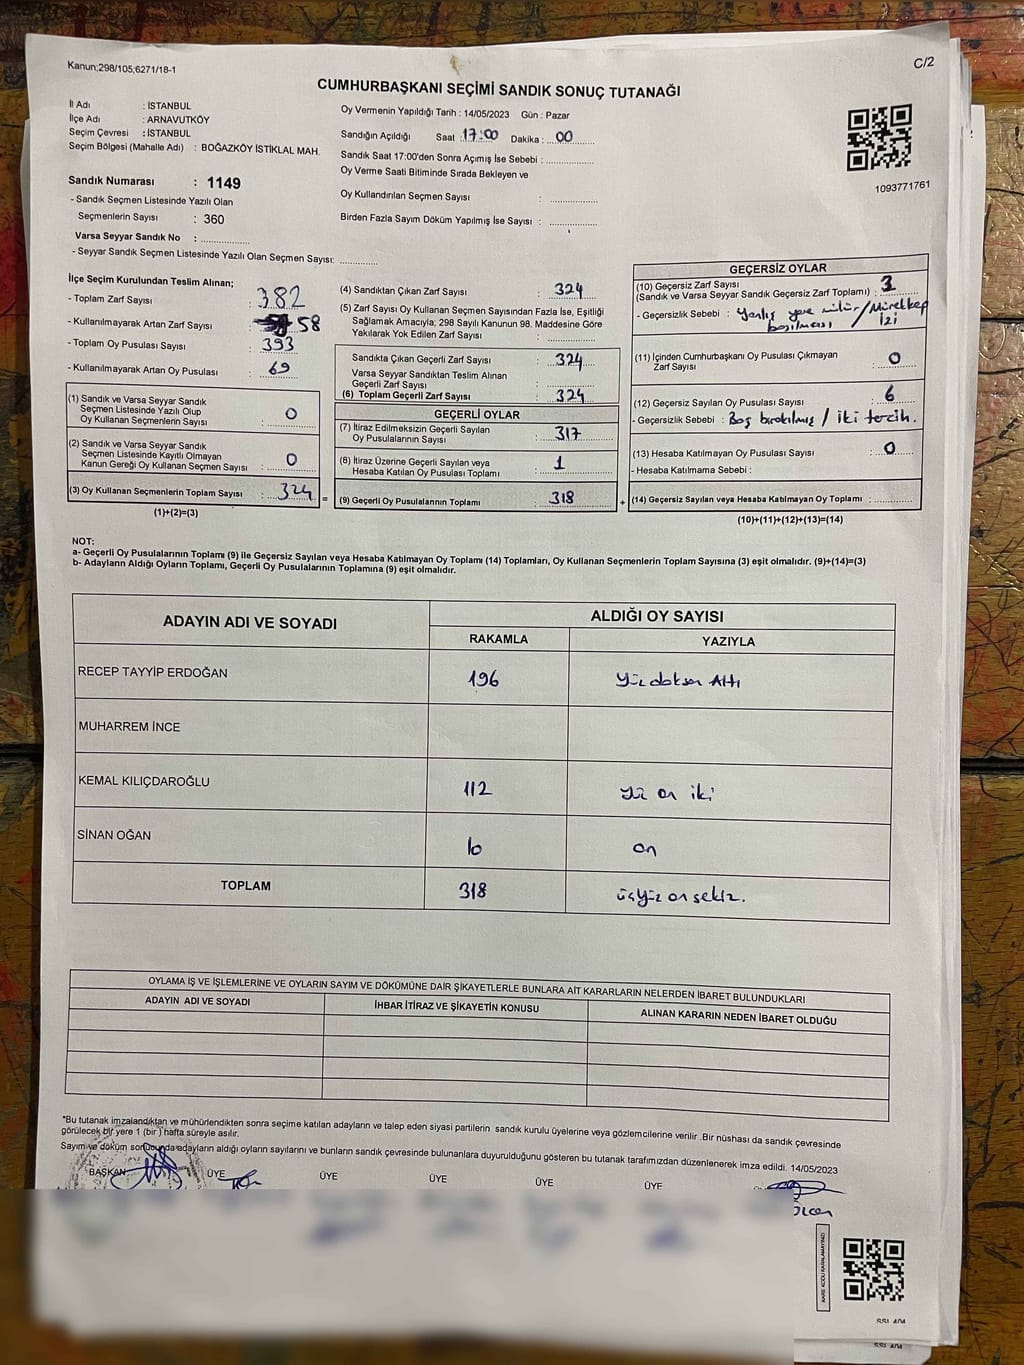 Kanun;298/105;6271/18-1
C/2
CUMHURBAŞKANI SEÇİMİ SANDIK SONUÇ TUTANAĞI
İl Adı : İSTANBUL
İlçe Adı : ARNAVUTKÖY
Seçim Çevresi : İSTANBUL
Seçim Bölgesi (Mahalle Adı) : BOĞAZKÖY İSTİKLAL MAH.
Sandık Numarası : 1149
- Sandık Seçmen Listesinde Yazılı Olan
Seçmenlerin Sayısı : 360
Varsa Seyyar Sandık No : ................
- Seyyar Sandık Seçmen Listesinde Yazılı Olan Seçmen Sayısı: ............
Oy Vermenin Yapıldığı Tarih : 14/05/2023 Gün : Pazar
Sandığın Açıldığı Saat : 17:00 Dakika : 00
Sandık Saat 17:00'den Sonra Açımış İse Sebebi : ..............
Oy Verme Saati Bitiminde Sırada Bekleyen ve
Oy Kullandırılan Seçmen Sayısı : ..............
Birden Fazla Sayım Döküm Yapılmış İse Sayısı : ..............
1093771761
İlçe Seçim Kurulundan Teslim Alınan;
- Toplam Zarf Sayısı : 382
- Kullanılmayarak Artan Zarf Sayısı : 58
- Toplam Oy Pusulası Sayısı : 393
- Kullanılmayarak Artan Oy Pusulası : 69
(1) Sandık ve Varsa Seyyar Sandık
Seçmen Listesinde Yazılı Olup
Oy Kullanan Seçmenlerin Sayısı : 0
(2) Sandık ve Varsa Seyyar Sandık
Seçmen Listesinde Kayıtlı Olmayan
Kanun Gereği Oy Kullanan Seçmen Sayısı : 0
(3) Oy Kullanan Seçmenlerin Toplam Sayısı : 324 =
(1)+(2)=(3)
(4) Sandıktan Çıkan Zarf Sayısı : 324
(5) Zarf Sayısı Oy Kullanan Seçmen Sayısından Fazla İse, Eşitliği
Sağlamak Amacıyla; 298 Sayılı Kanunun 98. Maddesine Göre
Yakılarak Yok Edilen Zarf Sayısı : ..............
Sandıkta Çıkan Geçerli Zarf Sayısı : 324
Varsa Seyyar Sandıktan Teslim Alınan
Geçerli Zarf Sayısı : ..............
(6) Toplam Geçerli Zarf Sayısı : 324
GEÇERLİ OYLAR
(7) İtiraz Edilmeksizin Geçerli Sayılan
Oy Pusulalarının Sayısı : 317
(8) İtiraz Üzerine Geçerli Sayılan veya
Hesaba Katılan Oy Pusulası Toplamı : 1
(9) Geçerli Oy Pusulalarının Toplamı : 318 +
GEÇERSİZ OYLAR
(10) Geçersiz Zarf Sayısı
(Sandık ve Varsa Seyyar Sandık Geçersiz Zarf Toplamı) : 3
- Geçersizlik Sebebi : Yanlış yere mühür/Mürekkep
basılması İzi
(11) İçinden Cumhurbaşkanı Oy Pusulası Çıkmayan
Zarf Sayısı : 0
(12) Geçersiz Sayılan Oy Pusulası Sayısı : 6
- Geçersizlik Sebebi : Boş bırakılmış / iki tercih.
(13) Hesaba Katılmayan Oy Pusulası Sayısı : 0
- Hesaba Katılmama Sebebi :
(14) Geçersiz Sayılan veya Hesaba Katılmayan Oy Toplamı : ............
(10)+(11)+(12)+(13)=(14)
NOT:
a- Geçerli Oy Pusulalarının Toplamı (9) ile Geçersiz Sayılan veya Hesaba Katılmayan Oy Toplamı (14) Toplamları, Oy Kullanan Seçmenlerin Toplam Sayısına (3) eşit olmalıdır. (9)+(14)=(3)
b- Adayların Aldığı Oyların Toplamı, Geçerli Oy Pusulalarının Toplamına (9) eşit olmalıdır.
ADAYIN ADI VE SOYADI
ALDIĞI OY SAYISI
RAKAMLA YAZIYLA
RECEP TAYYİP ERDOĞAN 196 Yüz doksan Altı
MUHARREM İNCE
KEMAL KILIÇDAROĞLU 112 yüz on iki
SİNAN OĞAN 10 on
TOPLAM 318 üçyüz on sekiz.
OYLAMA İŞ VE İŞLEMLERİNE VE OYLARIN SAYIM VE DÖKÜMÜNE DAİR ŞİKAYETLERLE BUNLARA AİT KARARLARIN NELERDEN İBARET BULUNDUKLARI
ADAYIN ADI VE SOYADI İHBAR İTİRAZ VE ŞİKAYETİN KONUSU ALINAN KARARIN NEDEN İBARET OLDUĞU
*Bu tutanak imzalandıktan ve mühürlendikten sonra seçime katılan adayların ve talep eden siyasi partilerin sandık kurulu üyelerine veya gözlemcilerine verilir .Bir nüshası da sandık çevresinde
görülecek bir yere 1 (bir ) hafta süreyle asılır.
Sayım ve döküm sonucunda adayların aldığı oyların sayılarını ve bunların sandık çevresinde bulunanlara duyurulduğunu gösteren bu tutanak tarafımızdan düzenlenerek imza edildi. 14/05/2023
BAŞKAN ÜYE ÜYE ÜYE ÜYE ÜYE
KARE KODU KARALAMAYINIZ!